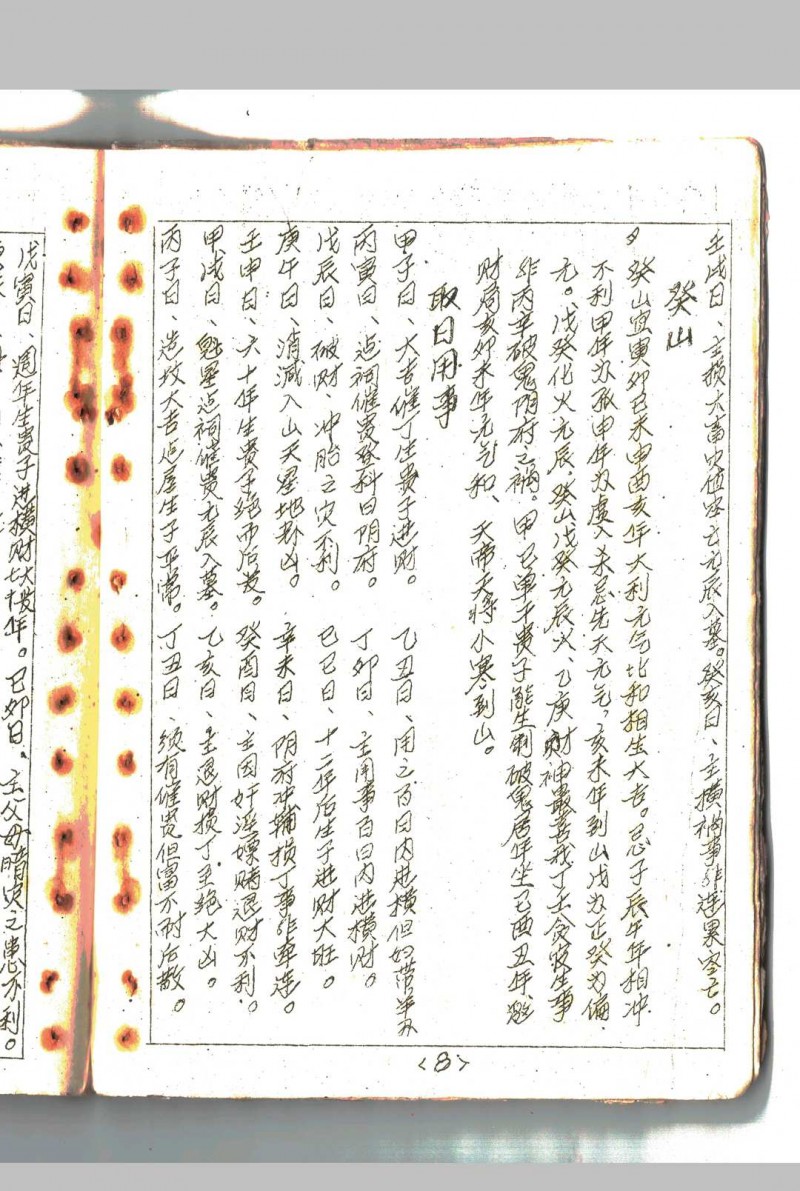 壬戌日、主损六畜灾伤空亡元辰入墓。癸亥日、主横祸事非连累空亡。
癸山
癸山宜寅卯巳未申酉亥年大利元气比和相生大吉。忌子辰午年相冲
不利甲年为孤申年为虚入杀忌先天元气，亥未年到山戊为正癸为偏
元。戊癸化火元辰癸山戊癸元辰火、乙庚财神最喜我丁壬贪官生事
非丙辛破鬼阴府之祸。甲己单子贵子能生制破鬼居年生巳酉丑年
财局亥卯未年元气和、天帝天将小寒到山。
取日用事
甲子日、大吉催丁生贵子进财。 乙丑日、用之百日内进横但妇
丙寅日、造祠催贵登科曰阴府。 丁卯日、主用事百日内进横财。
戊辰日、破财、冲胎之灾不利。 己巳日、十二年后生子进财大旺。
庚午日、消减入山天星地都凶。 辛未日、阴府冲辅损丁事非牵连。
壬申日、六十年生贵子绝而后发。 癸酉日、主因奸淫嫖赌退财不利。
甲戌日、魁星造祠催贵元辰入墓。 乙亥日、主退财损丁至绝大凶。
丙子日、造坟大吉造居生子平常。 丁丑日、须有催贵但富不耐后散。
<8>
戊寅日、週年生贵子进横财大发七十年。己卯日、主父母暗灾之患不利。